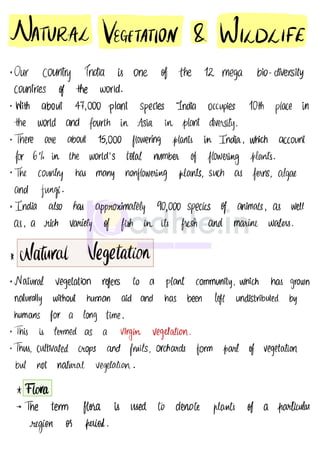 NATURAL VEGETATION & WILDLIFE
• Our country India is one of the 12 mega bio-diversity
countries of the world.
• With about 47,000 plant species India occupies 10th place in
the world and fourth in Asia in plant diversity.
• There are about 15,000 flowering plants in India, which account
for 6% in the world's total number of flowering plants.
• The country has many nonflowering plants, such as ferns, algae
and fungi.
• India also has approximately 90,000 species of animals, as well
as, a rich variety of fish in its fresh and marine waters.
* Natural Vegetation
• Natural vegetation refers to a plant community, which has grown
naturally without human aid and has been left undistributed by
humans for a long time.
• This is termed as a virgin vegetation.
• Thus, cultivated crops and fruits, orchards form part of vegetation
but not natural vegetation.
* Flora
→ The term flora is used to denote plants of a particular
region or period.